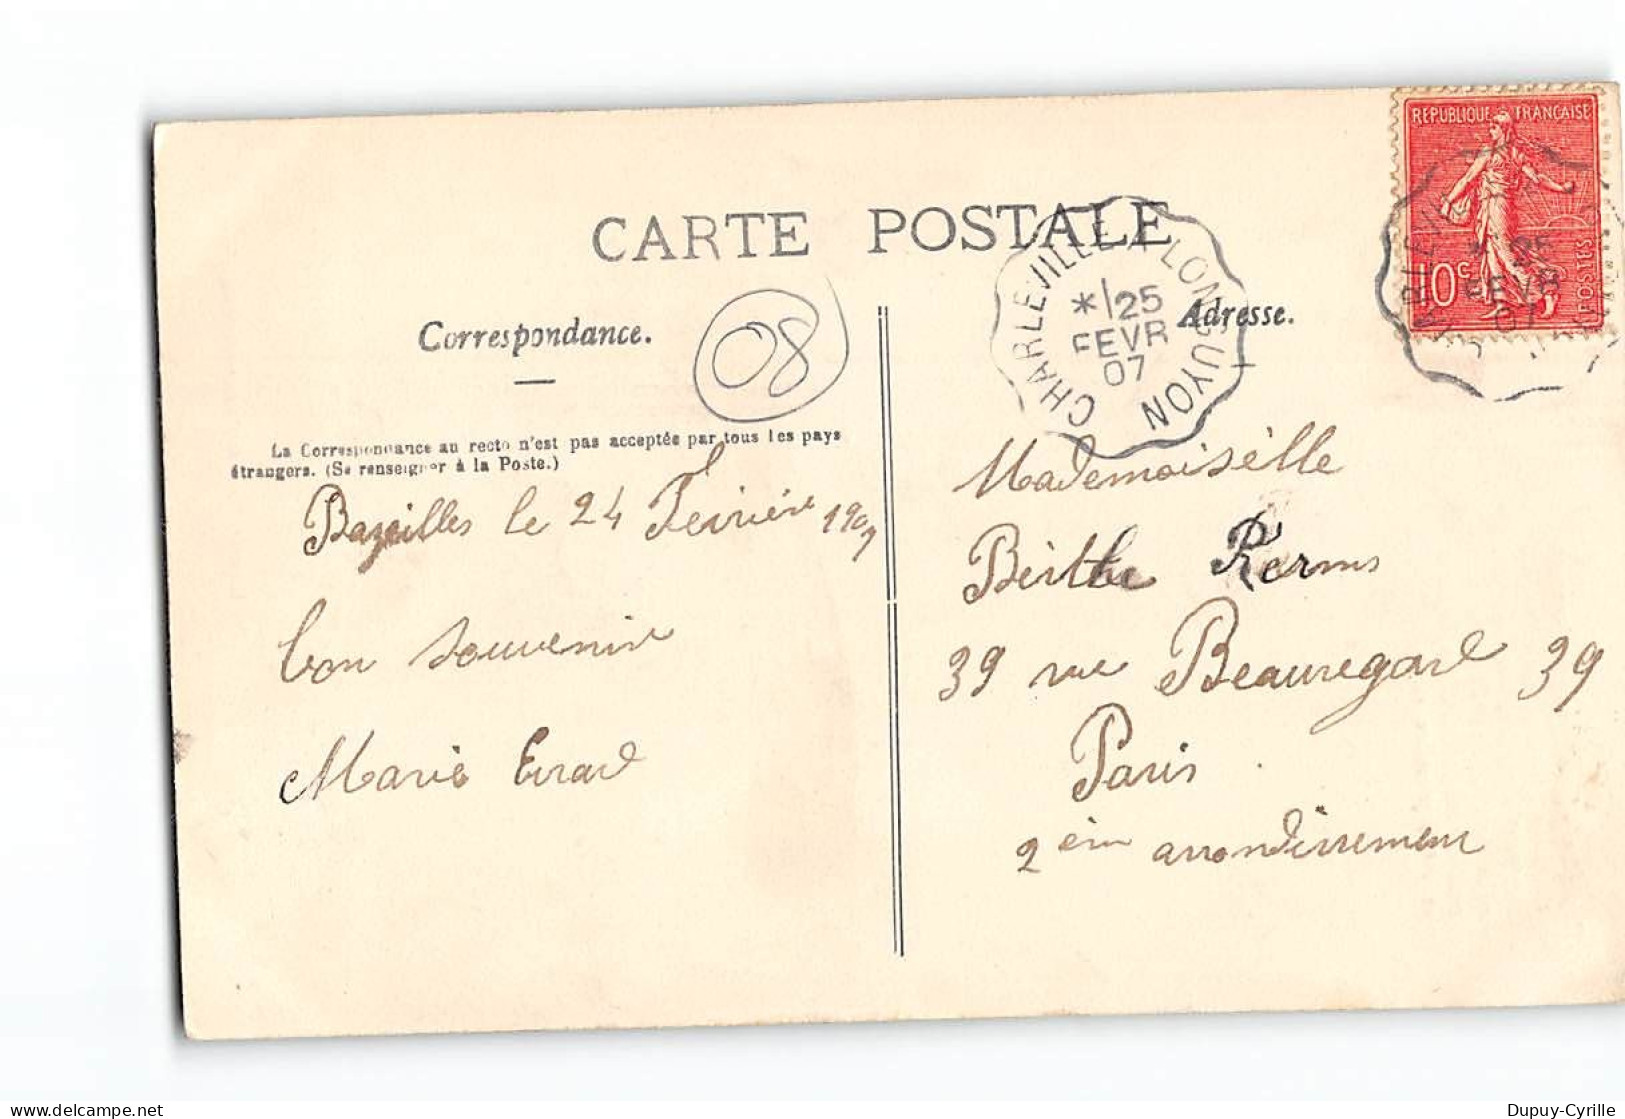 CARTE POSTALE
Correspondance.
08
La Correspondance au recto n'est pas acceptée par tous les pays
étrangers. (Se renseigner à la Poste.)
Bazeilles le 24 Fevrière 1907
bon souvenir
Marie Evrard
Adresse.
CHARLEVILLE A LONGUYON
* 25
FEVR
07
REPUBLIQUE FRANÇAISE
10c
POSTES
25
FEVR
07
Mademoiselle
Berthe
39 rue Beauregard 39
Paris
2èm arrondissement
Dupuy-Cyrille